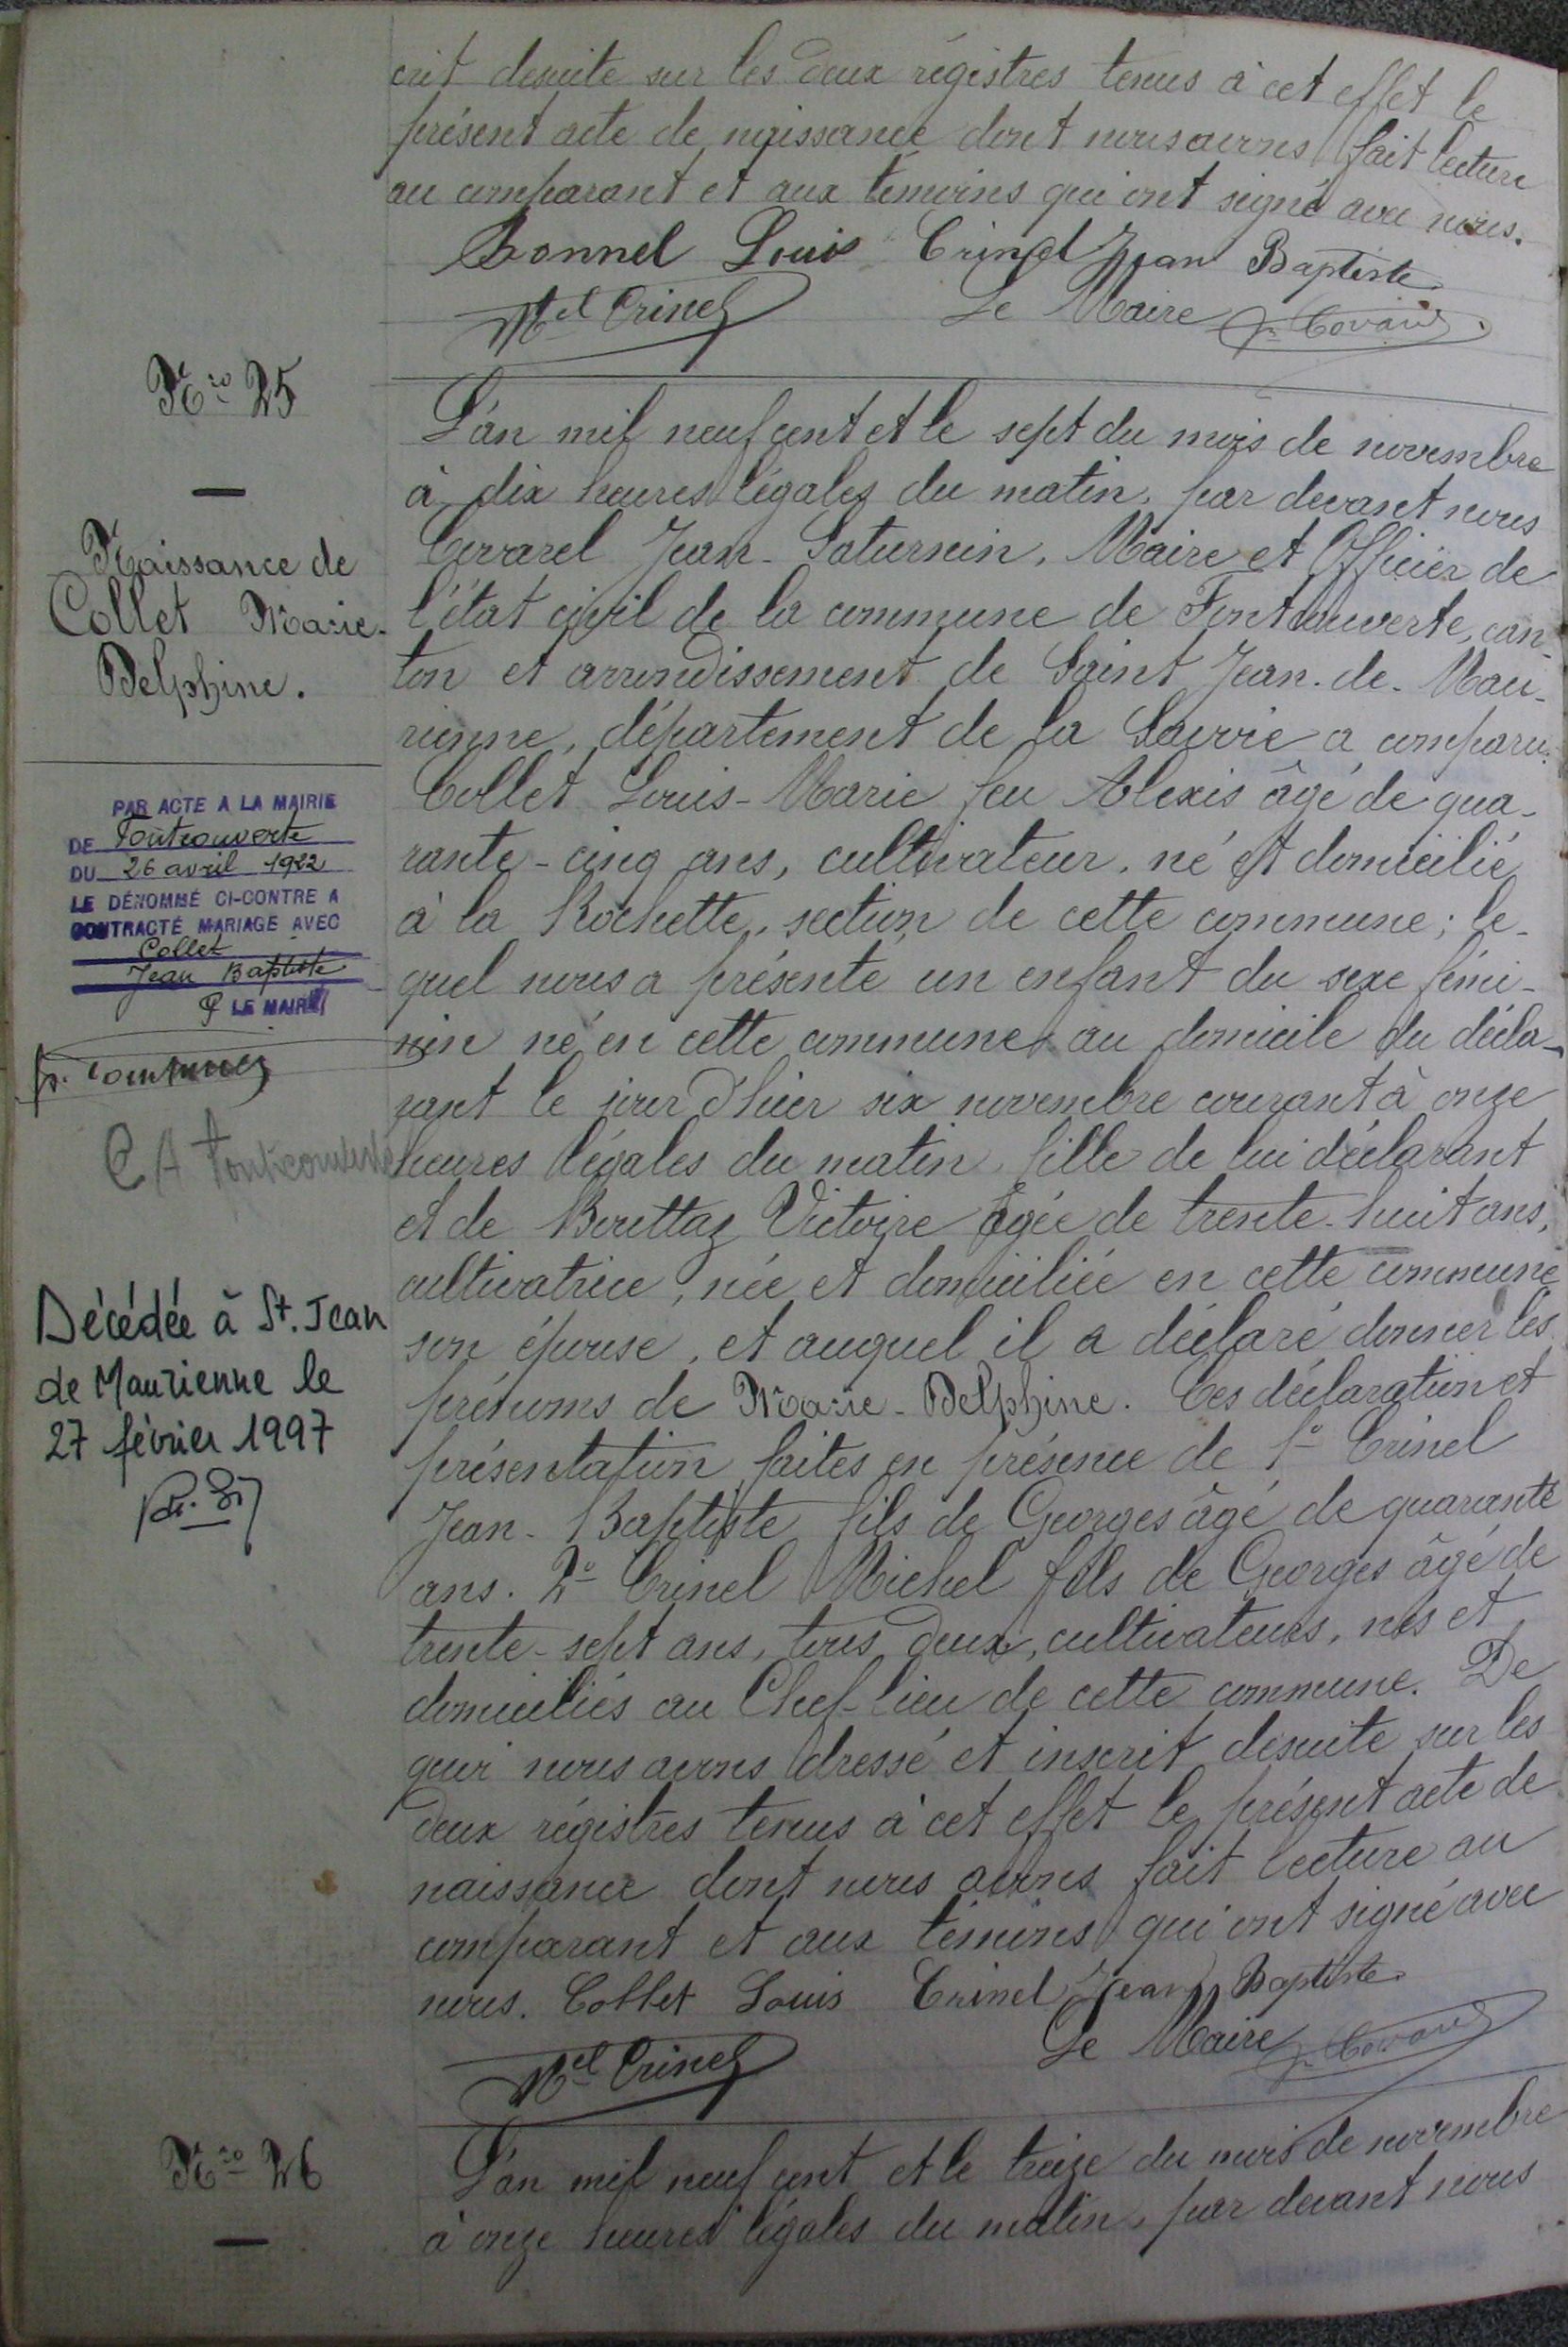 crit desuite sur les deux régistres tenus à cet effet le
présent acte de naissance dont nous avons fait lecture
au comparant et aux témoins qui ont signé avec nous.
Bonnel Louis Crinel Jean Baptiste
Mel Crinel Le Maire
Nro 25
Naissance de
Collet Marie-
Delphine.
PAR ACTE A LA MAIRIE
DE Fontcouverte
DU 26 avril 1922
LE DÉNOMMÉ CI-CONTRE A
CONTRACTÉ MARIAGE AVEC
Collet
Jean Baptiste
LE MAIRE
Décédée à St. Jean
de Maurienne le
27 février 1997
L'an mil neuf cent et le sept du mois de novembre
à dix heures légales du matin, par devant nous
Covarel Jean-Saturnin, Maire et Officier de
l'état civil de la commune de Fontcouverte, can-
ton et arrondissement de Saint Jean-de-Mau-
rienne, département de la Savoie a comparu:
Collet Louis-Marie feu Alexis âgé de qua-
rante-cinq ans, cultivateur, né et domicilié
à la Rochette, section de cette commune; le-
quel nous a présenté un enfant du sexe fémi-
nin né en cette commune au domicile du décla-
rant le jour d'hier six novembre courant à onze
heures légales du matin, fille de lui déclarant
et de Bouttaz Victoire âgée de trente-huit ans,
cultivatrice, née et domiciliée en cette commune
son épouse, et auquel il a déclaré donner les
prénoms de Marie-Delphine. Ces déclaration et
présentation faites en présence de 1o Crinel
Jean-Baptiste fils de Georges âgé de quarante
ans. 2o Crinel Michel fils de Georges âgé de
trente-sept ans, tous deux, cultivateurs, nés et
domiciliés au Chef-lieu de cette commune. De
quoi nous avons dressé et inscrit desuite sur les
deux régistres tenus à cet effet le présent acte de
naissance dont nous avons fait lecture au
comparant et aux témoins qui ont signé avec
nous. Collet Louis Crinel Jean Baptiste
Mel Crinel Le Maire
Nro 26
L'an mil neuf cent et le treize du mois de novembre
à onze heures légales du matin, par devant nous